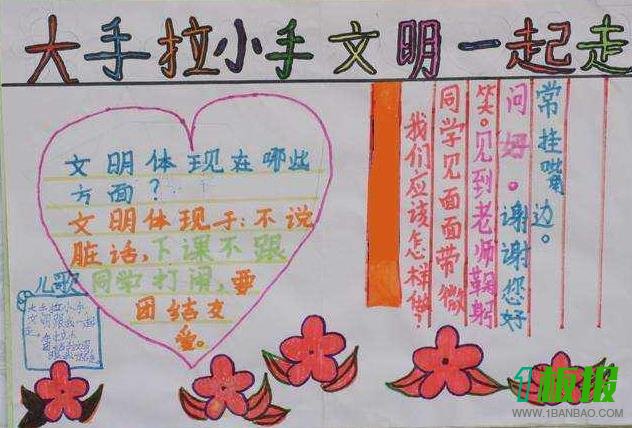 大手拉小手文明一起走
文明体现在哪些
方面?
文明体现于:不说
脏话,下课不跟
同学打闹,要
团结友
爱。
儿歌
大手拉小手
我们应该怎样做?
同学见面面带微
笑。见到老师鞠躬
问好。谢谢您好
常挂嘴边。
1板报
WWW.1BANBAO.COM